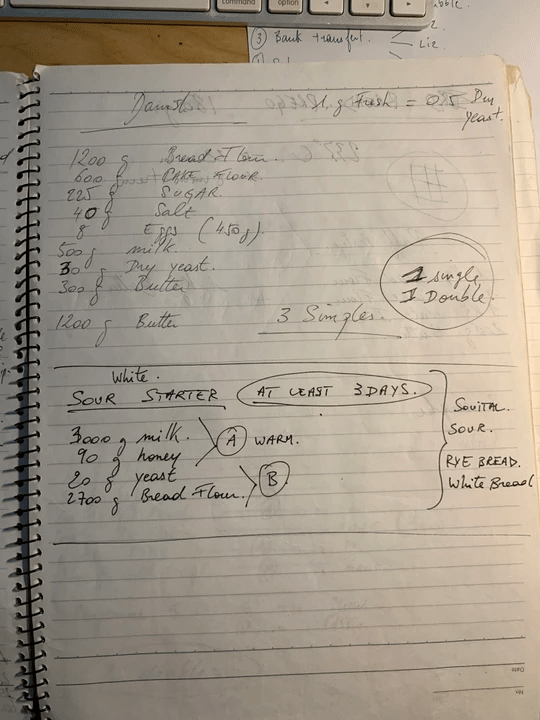 command
option
③ Bank transfer.
Liz
Danish 1 g Fresh = 0.5 Dry yeast.
1200 g Bread Flour.
600 g CAKE FLOUR.
225 g SUGAR.
40 g Salt
8 Eggs (450g).
500 g milk.
30 g Dry yeast.
300 g Butter
1200 g Butter
3 Simples.
1 single
1 Double.
White.
SOUR STARTER AT LEAST 3 DAYS.
3000 g milk.
90 g honey
A WARM.
20 g yeast
2700 g Bread Flour.
B
SOUITAL.
SOUR.
RYE BREAD.
White Bread
Date
No.